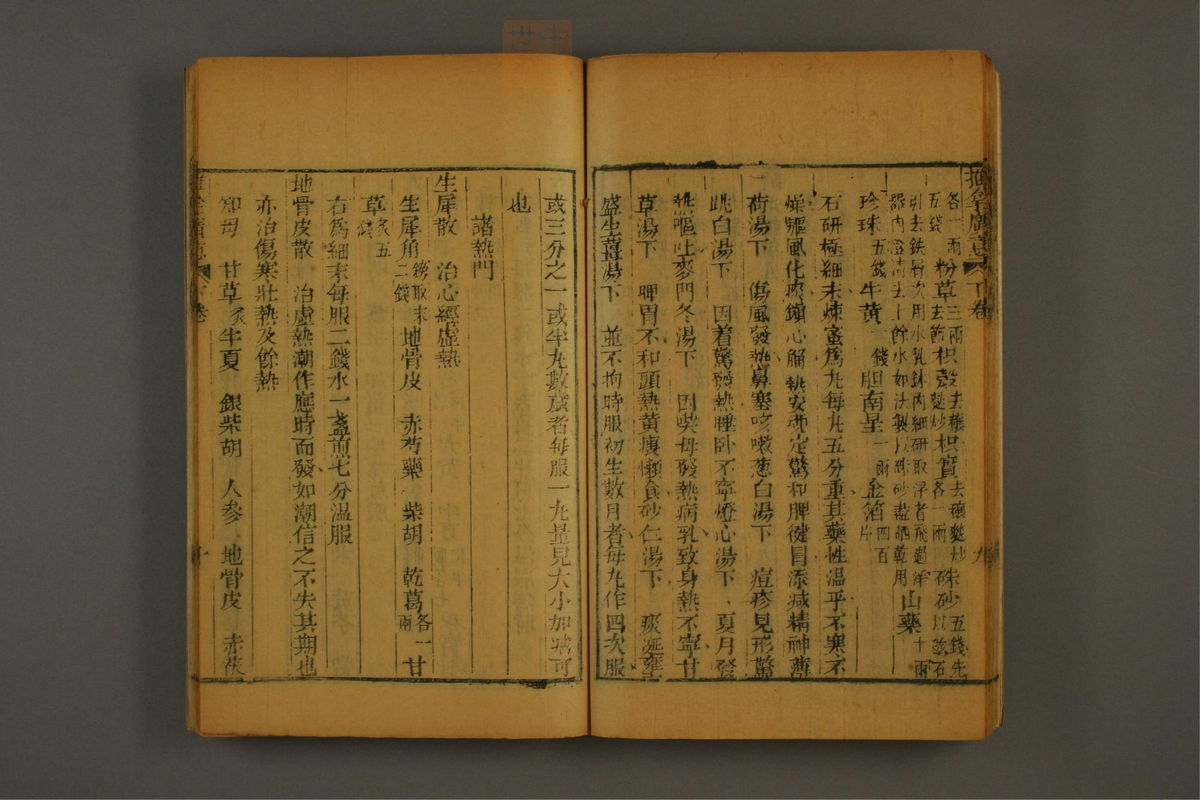 各一兩粉草三兩
五錢粉草去節枳殼去穰麩炒枳實去穰麩炒各一兩硃砂五錢先以磁石
引去鐵屑次用水乳鉢內細研取浮者飛過淨
器內澄清去上餘水如法製以硃砂盡晒乾用山藥十兩
珍珠五錢牛黃一錢胆南星一兩金箔四百片
右研極細末煉蜜為丸每丸五分重其藥性溫乎不寒不
燥驅風化痰鎮心觧熱安魂定驚和脾健胃添減精神薄
荷湯下 傷風發熱鼻塞咳嗽葱白湯下 痘疹見形驚
跳白湯下 因着驚發熱睡卧不寧燈心湯下 夏月發
熱嘔吐麥門冬湯下 因喫母發熱病乳致身熱不寧甘
草湯下 脾胃不和頭熱黃瘦懶食砂仁湯下 痰涎壅
盛生薑湯下 並不拘時服初生數月者每丸作四次服
或三分之一或半丸數歲者每服一丸量見大小加減可
也
諸熱門
生犀散 治心經虛熱
生犀角鎊取末二錢地骨皮 赤芍藥 柴胡 乾葛各一兩甘
草炙五錢
右為細末每服二錢水一盞煎七分温服
地骨皮散 治虛熱潮作應時而發如潮信之不失其期也
亦治傷寒壯熱及餘熱
知母 甘草炙半夏 銀柴胡 人參 地骨皮 赤茯